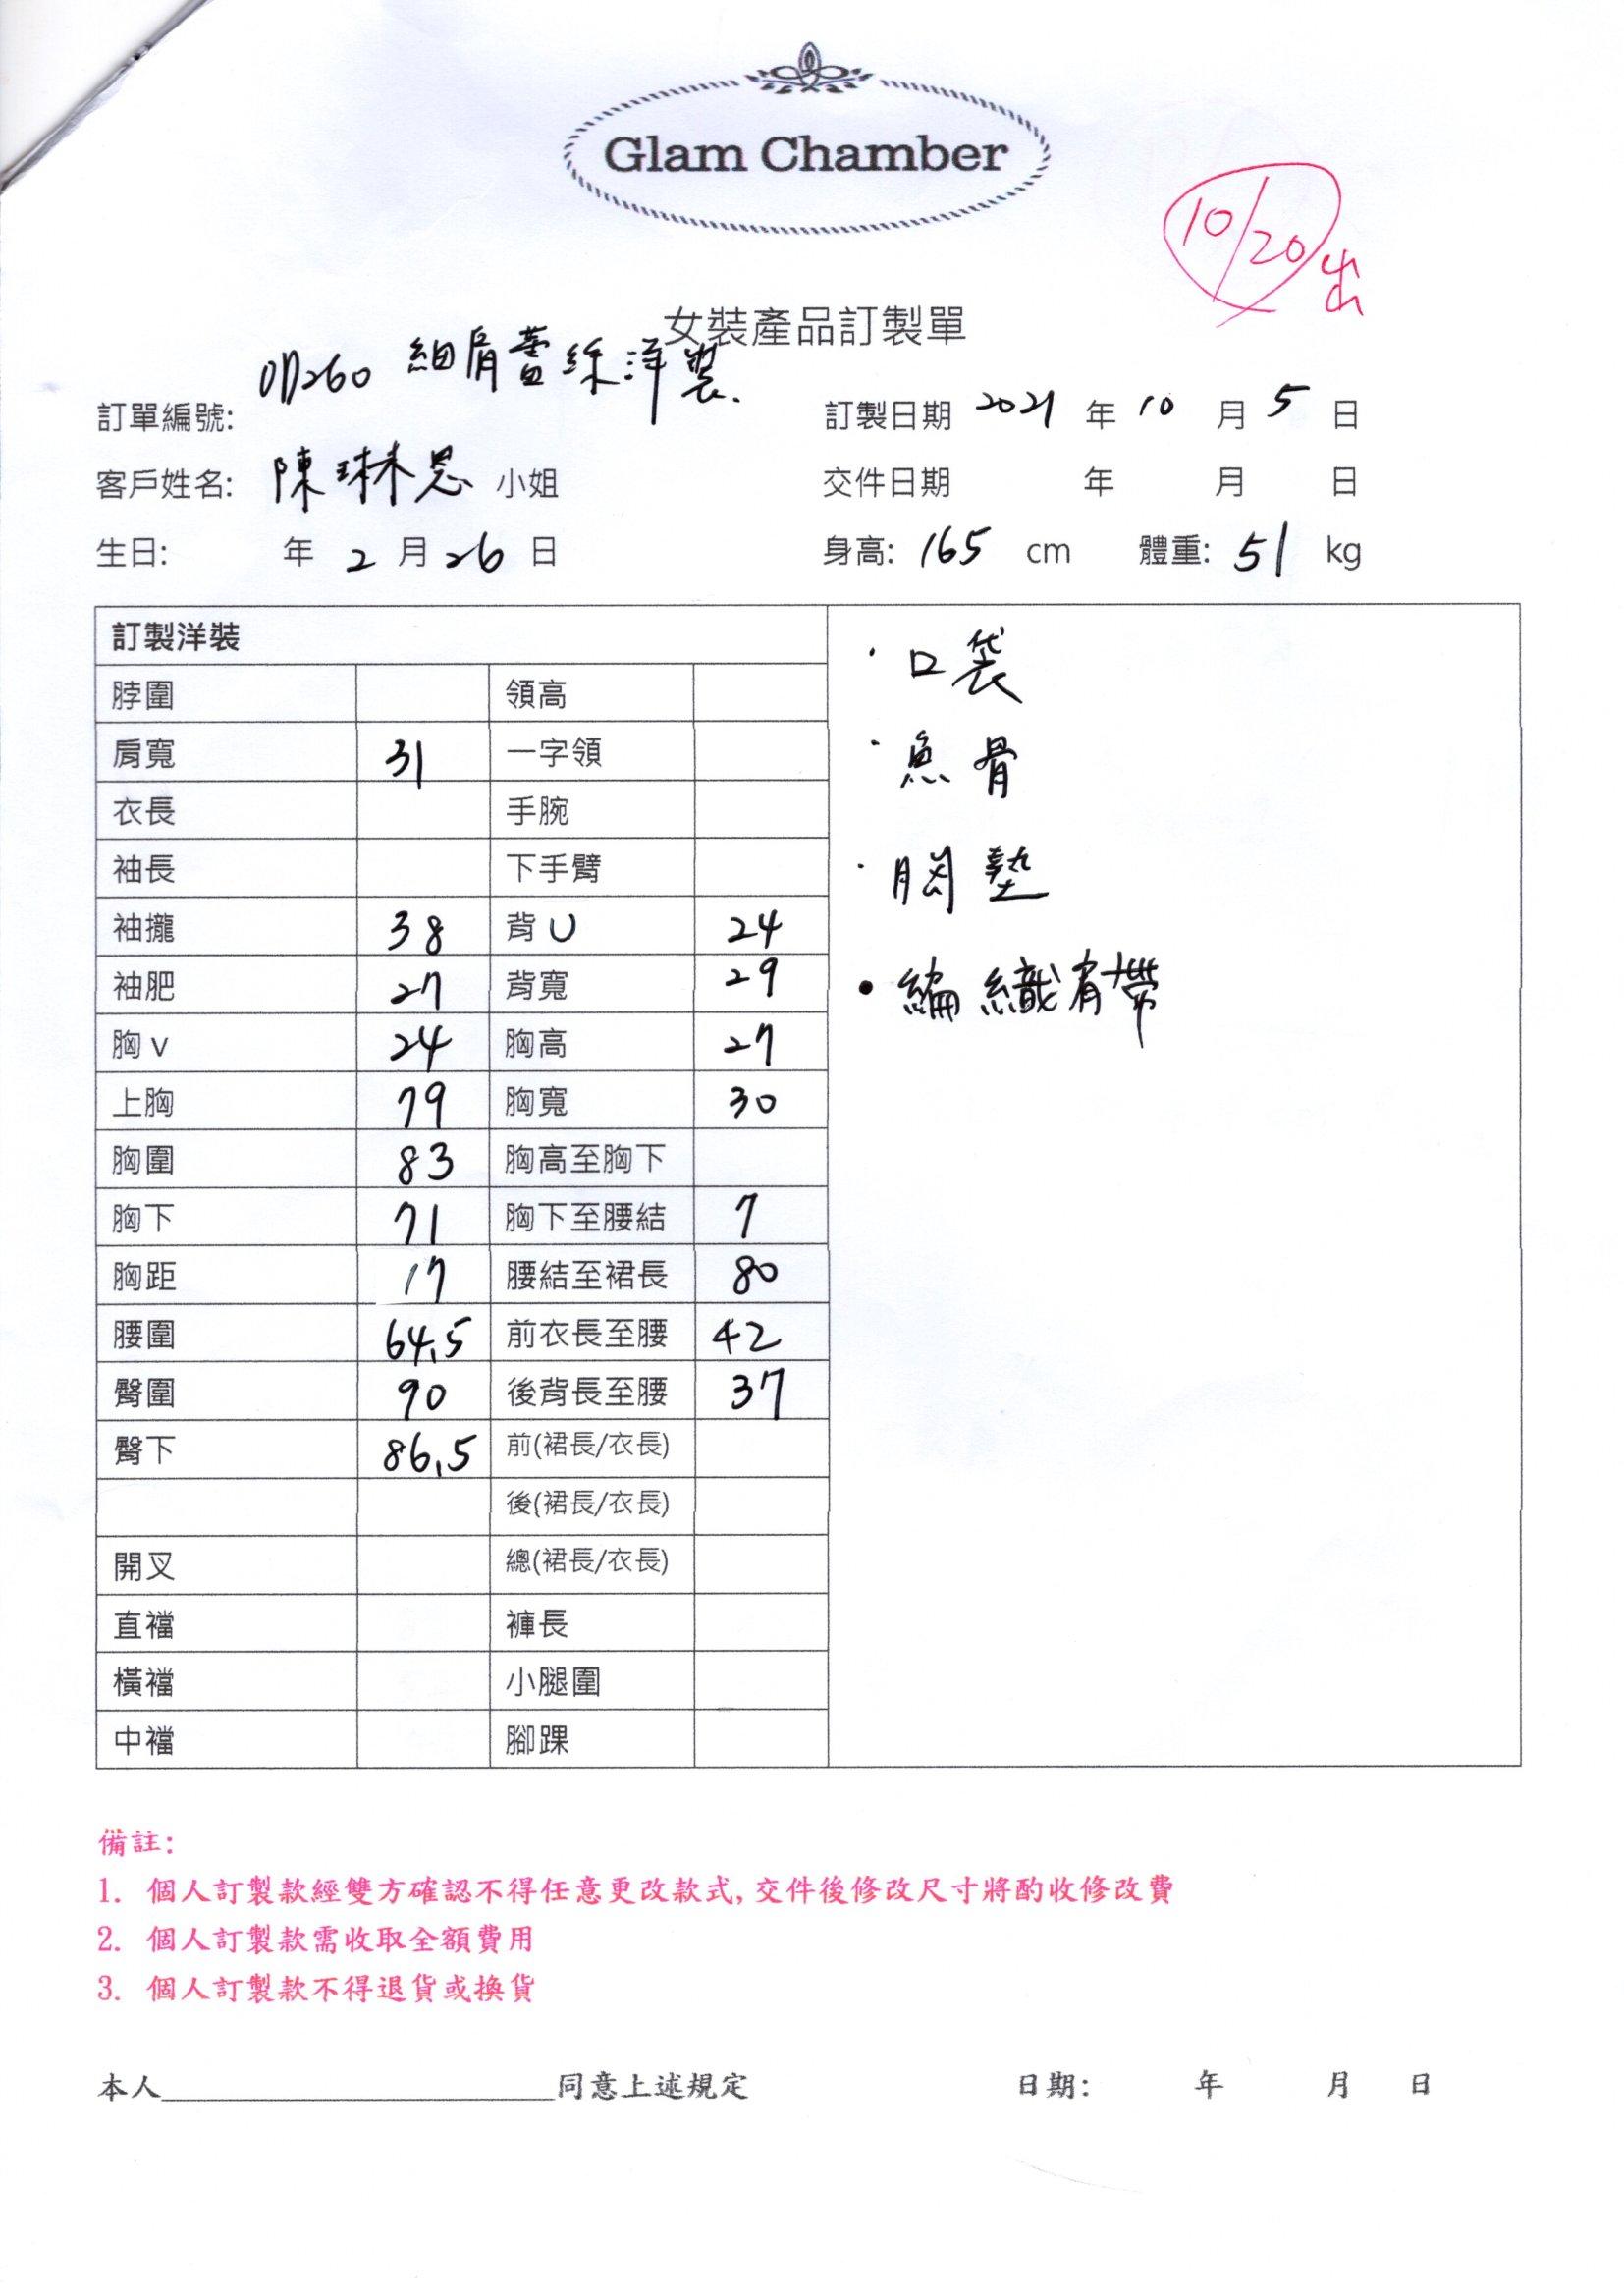 Glam Chamber
10/20 出
女裝產品訂製單
細肩蕾絲洋裝.
訂單編號: 訂製日期 2021 年 10 月 5 日
客戶姓名: 陳琳恩 小姐 交件日期 年 月 日
生日: 年 2 月 26 日 身高: 165 cm 體重: 51 kg
訂製洋裝
脖圍 領高
肩寬 31 一字領
衣長 手腕
袖長 下手臂
袖攏 38 背 U 24
袖肥 27 背寬 29
胸 v 24 胸高 27
上胸 79 胸寬 30
胸圍 83 胸高至胸下
胸下 71 胸下至腰結 7
胸距 17 腰結至裙長 80
腰圍 64.5 前衣長至腰 42
臀圍 90 後背長至腰 37
臀下 86.5 前(裙長/衣長)
後(裙長/衣長)
開叉 總(裙長/衣長)
直襠 褲長
橫襠 小腿圍
中襠 腳踝
· 口袋
· 魚骨
· 胸墊
• 編織肩帶
備註:
1. 個人訂製款經雙方確認不得任意更改款式,交件後修改尺寸將酌收修改費
2. 個人訂製款需收取全額費用
3. 個人訂製款不得退貨或換貨
本人________________同意上述規定 日期: 年 月 日